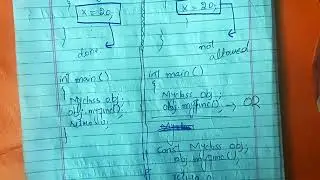 x = 20;
}
}
done
int main()
{
Myclass obj;
obj.myfunc();
return 0;
}
x = 20;
}
}
not
allowed
int main()
{
Myclass obj;
obj.myfunc(); → OR
const Myclass obj;
obj.myfunc();
return 0;